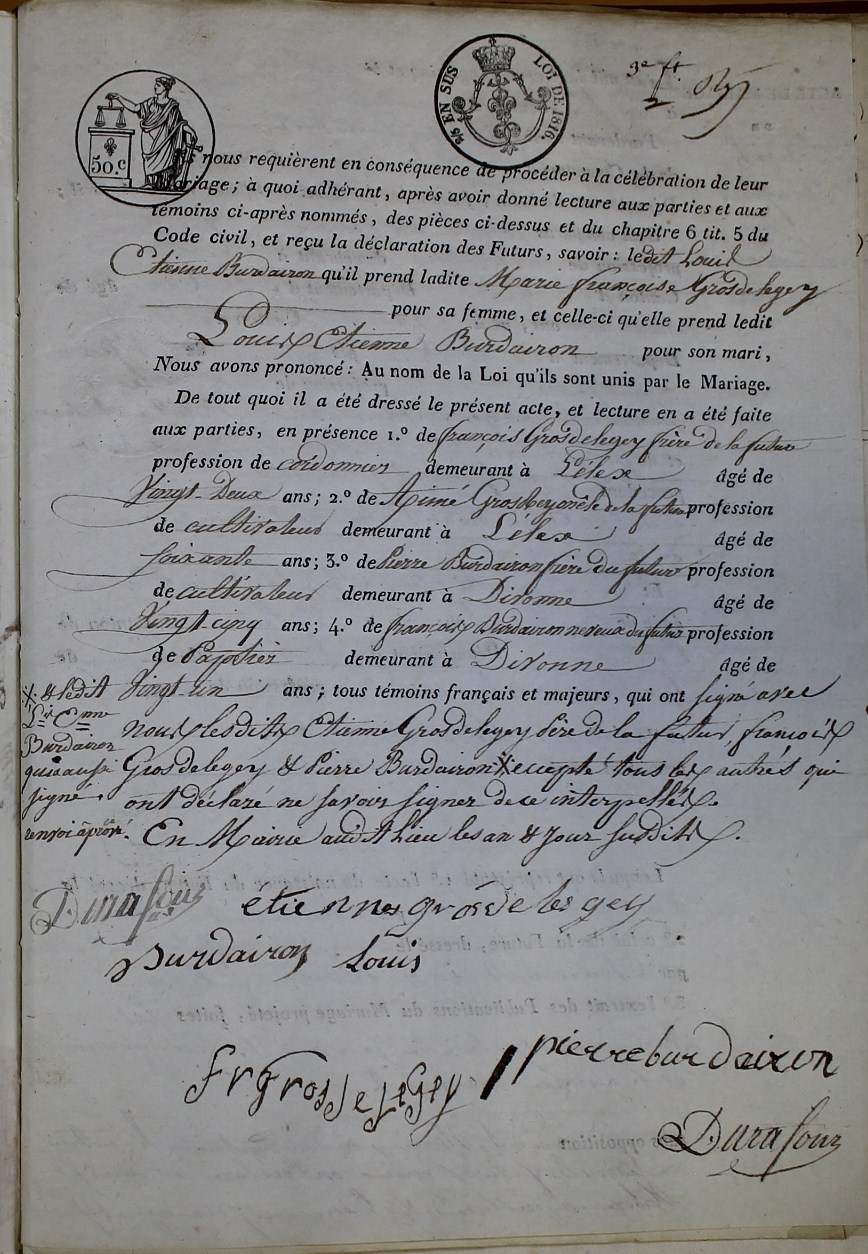 3e ft.
2
EN SUS LOI DE 1816.
50.c
nous requièrent en conséquence de procéder à la célébration de leur
mariage; à quoi adhérant, après avoir donné lecture aux parties et aux
témoins ci-après nommés, des pièces ci-dessus et du chapitre 6 tit. 5 du
Code civil, et reçu la déclaration des Futurs, savoir: ledit Louis
Etienne Burdairon qu'il prend ladite Marie françoise Grosdelegey
pour sa femme, et celle-ci qu'elle prend ledit
Louis Etienne Burdairon pour son mari,
Nous avons prononcé: Au nom de la Loi qu'ils sont unis par le Mariage.
De tout quoi il a été dressé le présent acte, et lecture en a été faite
aux parties, en présence 1.º de françois Grosdelegey frère de la future
profession de cordonnier demeurant à Lélex âgé de
Vingt-Deux ans; 2.º de Aimé Grosdelegey oncle de la future profession
de cultivateur demeurant à Lélex âgé de
soixante ans; 3.º de Pierre Burdairon frère du futur profession
de cultivateur demeurant à Divonne âgé de
Vingt cinq ans; 4.º de françois Burdairon neveux du futur profession
de Papetier demeurant à Divonne âgé de
Vingt un ans; tous témoins français et majeurs, qui ont signé avec
nous lesdits Etienne Grosdelegey Père de la futur, françois
Grosdelegey & Pierre Burdairon excepté tous les autres qui
ont déclaré ne savoir signer de ce interpellés.
En Mairie audit Lieu les an & jour susdits.
& ledit
Ls Enne
Burdairon
qui a aussi
signé.
renvoi apprové.
Darafour
étiennes grosde les gey
Burdairon Louis
fr grosdelegey
pierre burdairon
Darafour